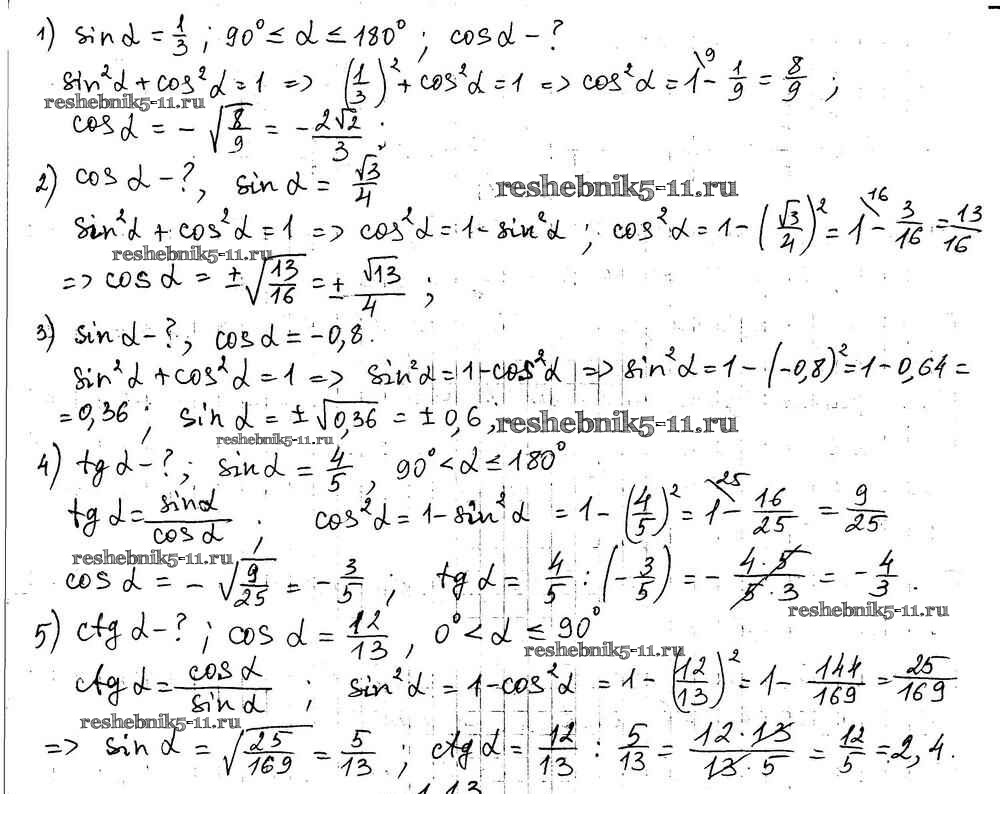 1) sin α = 1/3 ; 90° ≤ α ≤ 180° ; cos α - ?
sin²α + cos²α = 1 => (1/3)² + cos²α = 1 => cos²α = 1\⁹ - 1/9 = 8/9 ;
reshebnik5-11.ru
cos α = - √(8/9) = - 2√2/3 .
2) cos α - ?, sin α = √3/4
reshebnik5-11.ru
sin²α + cos²α = 1 => cos²α = 1 - sin²α ; cos²α = 1 - (√3/4)² = 1\¹⁶ - 3/16 = 13/16
reshebnik5-11.ru
=> cos α = ± √(13/16) = ± √13/4 ;
3) sin α - ?, cos α = -0,8.
sin²α + cos²α = 1 => sin²α = 1 - cos²α => sin²α = 1 - (-0,8)² = 1 - 0,64 =
= 0,36 ; sin α = ± √0,36 = ± 0,6 ,
reshebnik5-11.ru
reshebnik5-11.ru
4) tg α - ? ; sin α = 4/5 , 90° < α ≤ 180°
tg α = sin α/cos α ; cos²α = 1 - sin²α = 1 - (4/5)² = 1\²⁵ - 16/25 = 9/25
reshebnik5-11.ru
cos α = - √(9/25) = - 3/5 ; tg α = 4/5 : (- 3/5) = - 4·5/5·3 = - 4/3 .
reshebnik5-11.ru
5) ctg α - ? ; cos α = 12/13 , 0° < α ≤ 90°
reshebnik5-11.ru
ctg α = cos α/sin α ; sin²α = 1 - cos²α = 1 - (12/13)² = 1 - 144/169 = 25/169
reshebnik5-11.ru
=> sin α = √(25/169) = 5/13 ; ctg α = 12/13 : 5/13 = 12·13/13·5 = 12/5 = 2,4.